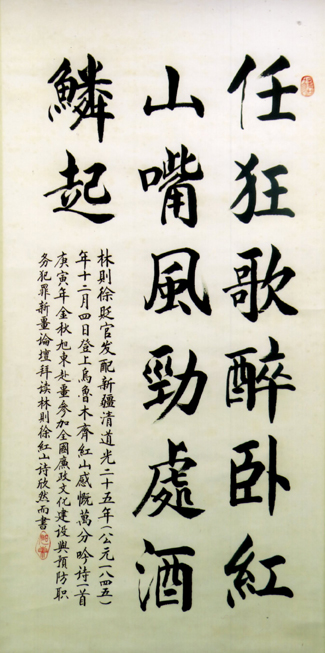 任狂歌醉卧紅
山嘴風勁處酒
鱗起
林則徐貶官发配新疆清道光二十五年(公元一八四五)
年十二月四日登上烏魯木齊紅山感慨萬分吟詩一首
庚寅年金秋旭東赴疆參加全國廉政文化建设與預防职
务犯罪新畺論壇拜读林則徐紅山詩欣然而書